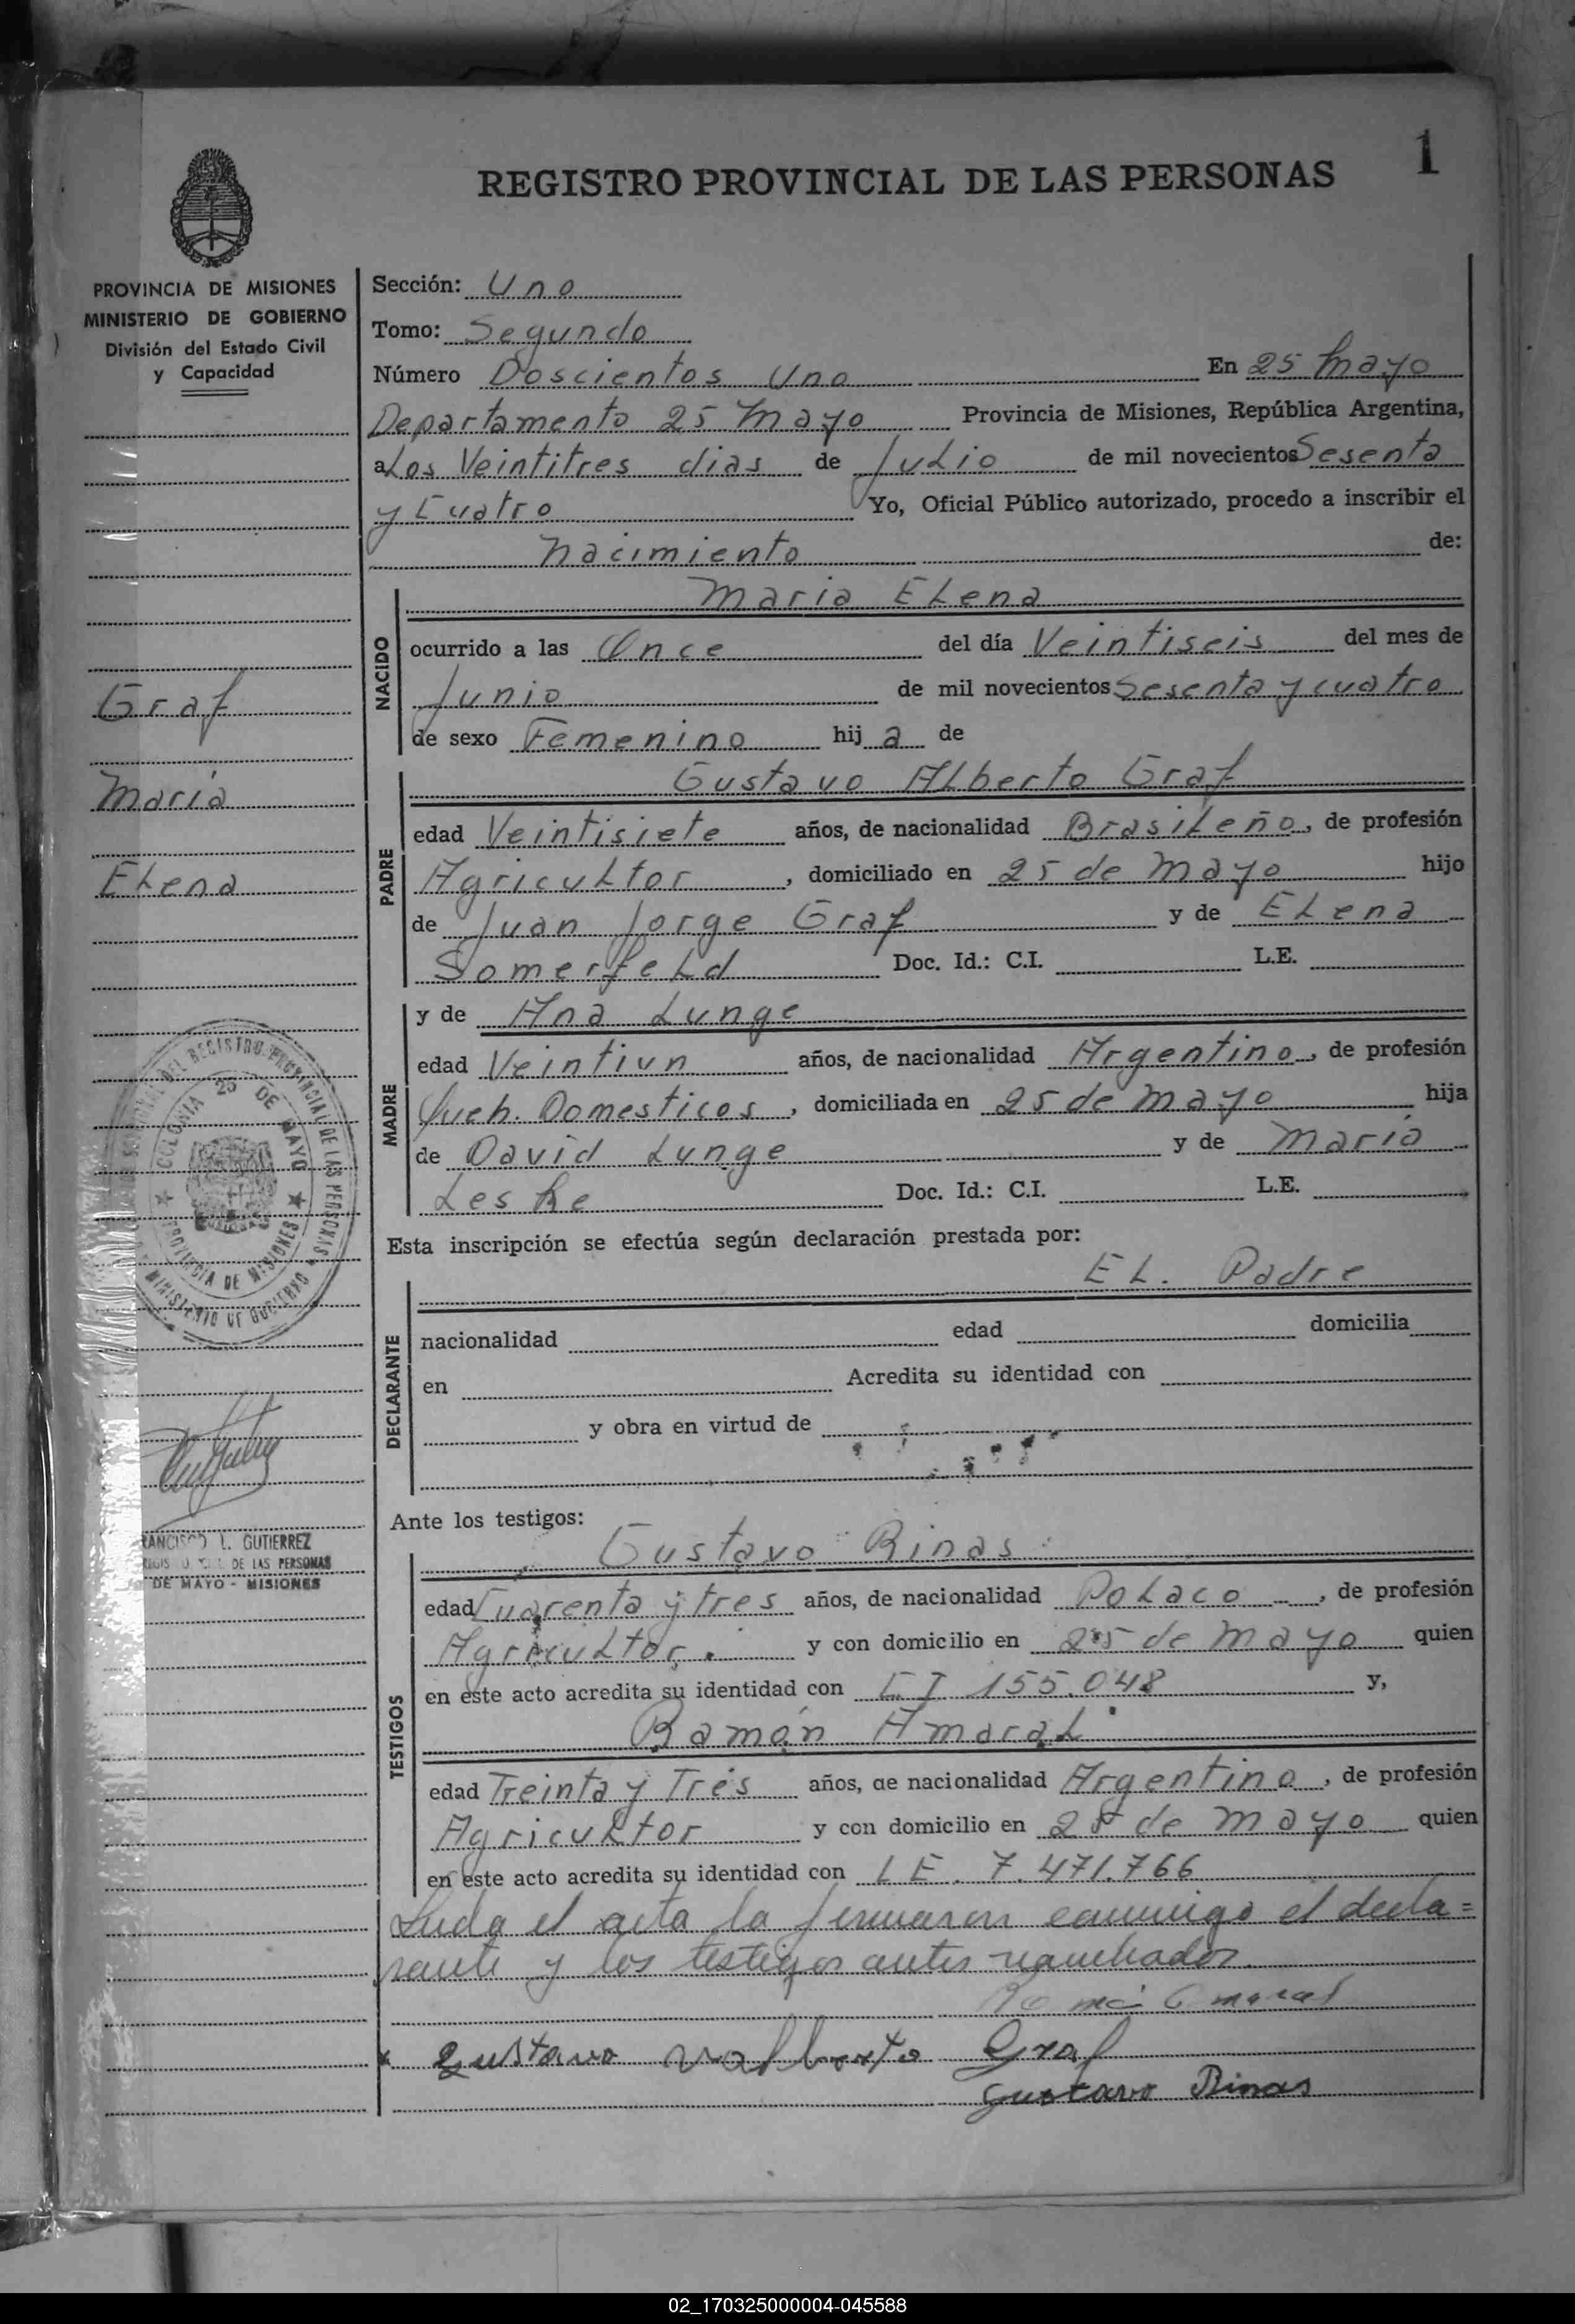 1
REGISTRO PROVINCIAL DE LAS PERSONAS
PROVINCIA DE MISIONES
MINISTERIO DE GOBIERNO
División del Estado Civil
y Capacidad
Graf
María
Elena
COLONIA 25 DE MAYO
PROVINCIA DE MISIONES
MINISTERIO DE GOBIERNO
GUTIERREZ
DE LAS PERSONAS
DE MAYO - MISIONES
Sección: Uno
Tomo: Segundo
Número Doscientos Uno En 25 Mayo
Departamento 25 Mayo Provincia de Misiones, República Argentina,
a Los Veintitres dias de Julio de mil novecientos Sesenta
y Cuatro Yo, Oficial Público autorizado, procedo a inscribir el
Nacimiento de:
NACIDO
Maria Elena
ocurrido a las Once del día Veintiseis del mes de
Junio de mil novecientos Sesenta y cuatro
de sexo Femenino hij a de
PADRE
Gustavo Alberto Graf
edad Veintisiete años, de nacionalidad Brasileño, de profesión
Agricultor, domiciliado en 25 de Mayo hijo
de Juan Jorge Graf y de Elena
Somerfeld Doc. Id.: C.I. L.E.
MADRE
y de Ana Lunge
edad Veintiun años, de nacionalidad Argentina, de profesión
Queh. Domesticos, domiciliada en 25 de Mayo hija
de David Lunge y de María
Leske Doc. Id.: C.I. L.E.
Esta inscripción se efectúa según declaración prestada por:
DECLARANTE
EL. Padre
nacionalidad edad domicilia
en Acredita su identidad con
y obra en virtud de
Ante los testigos:
TESTIGOS
Gustavo Rinas
edad Cuarenta y tres años, de nacionalidad Polaco, de profesión
Agricultor. y con domicilio en 25 de Mayo quien
en este acto acredita su identidad con C.I 155.048 y,
Ramón Amaral
edad Treinta y Trés años, de nacionalidad Argentino, de profesión
Agricultor y con domicilio en 25 de Mayo quien
en este acto acredita su identidad con L E. 7.471.766
Leida el acta la firmaron conmigo el decla=
rante y los testigos antes nombrados.
Amaral
Gustavo Valberto Graf
Gustavo Rinas
02_170325000004-045588